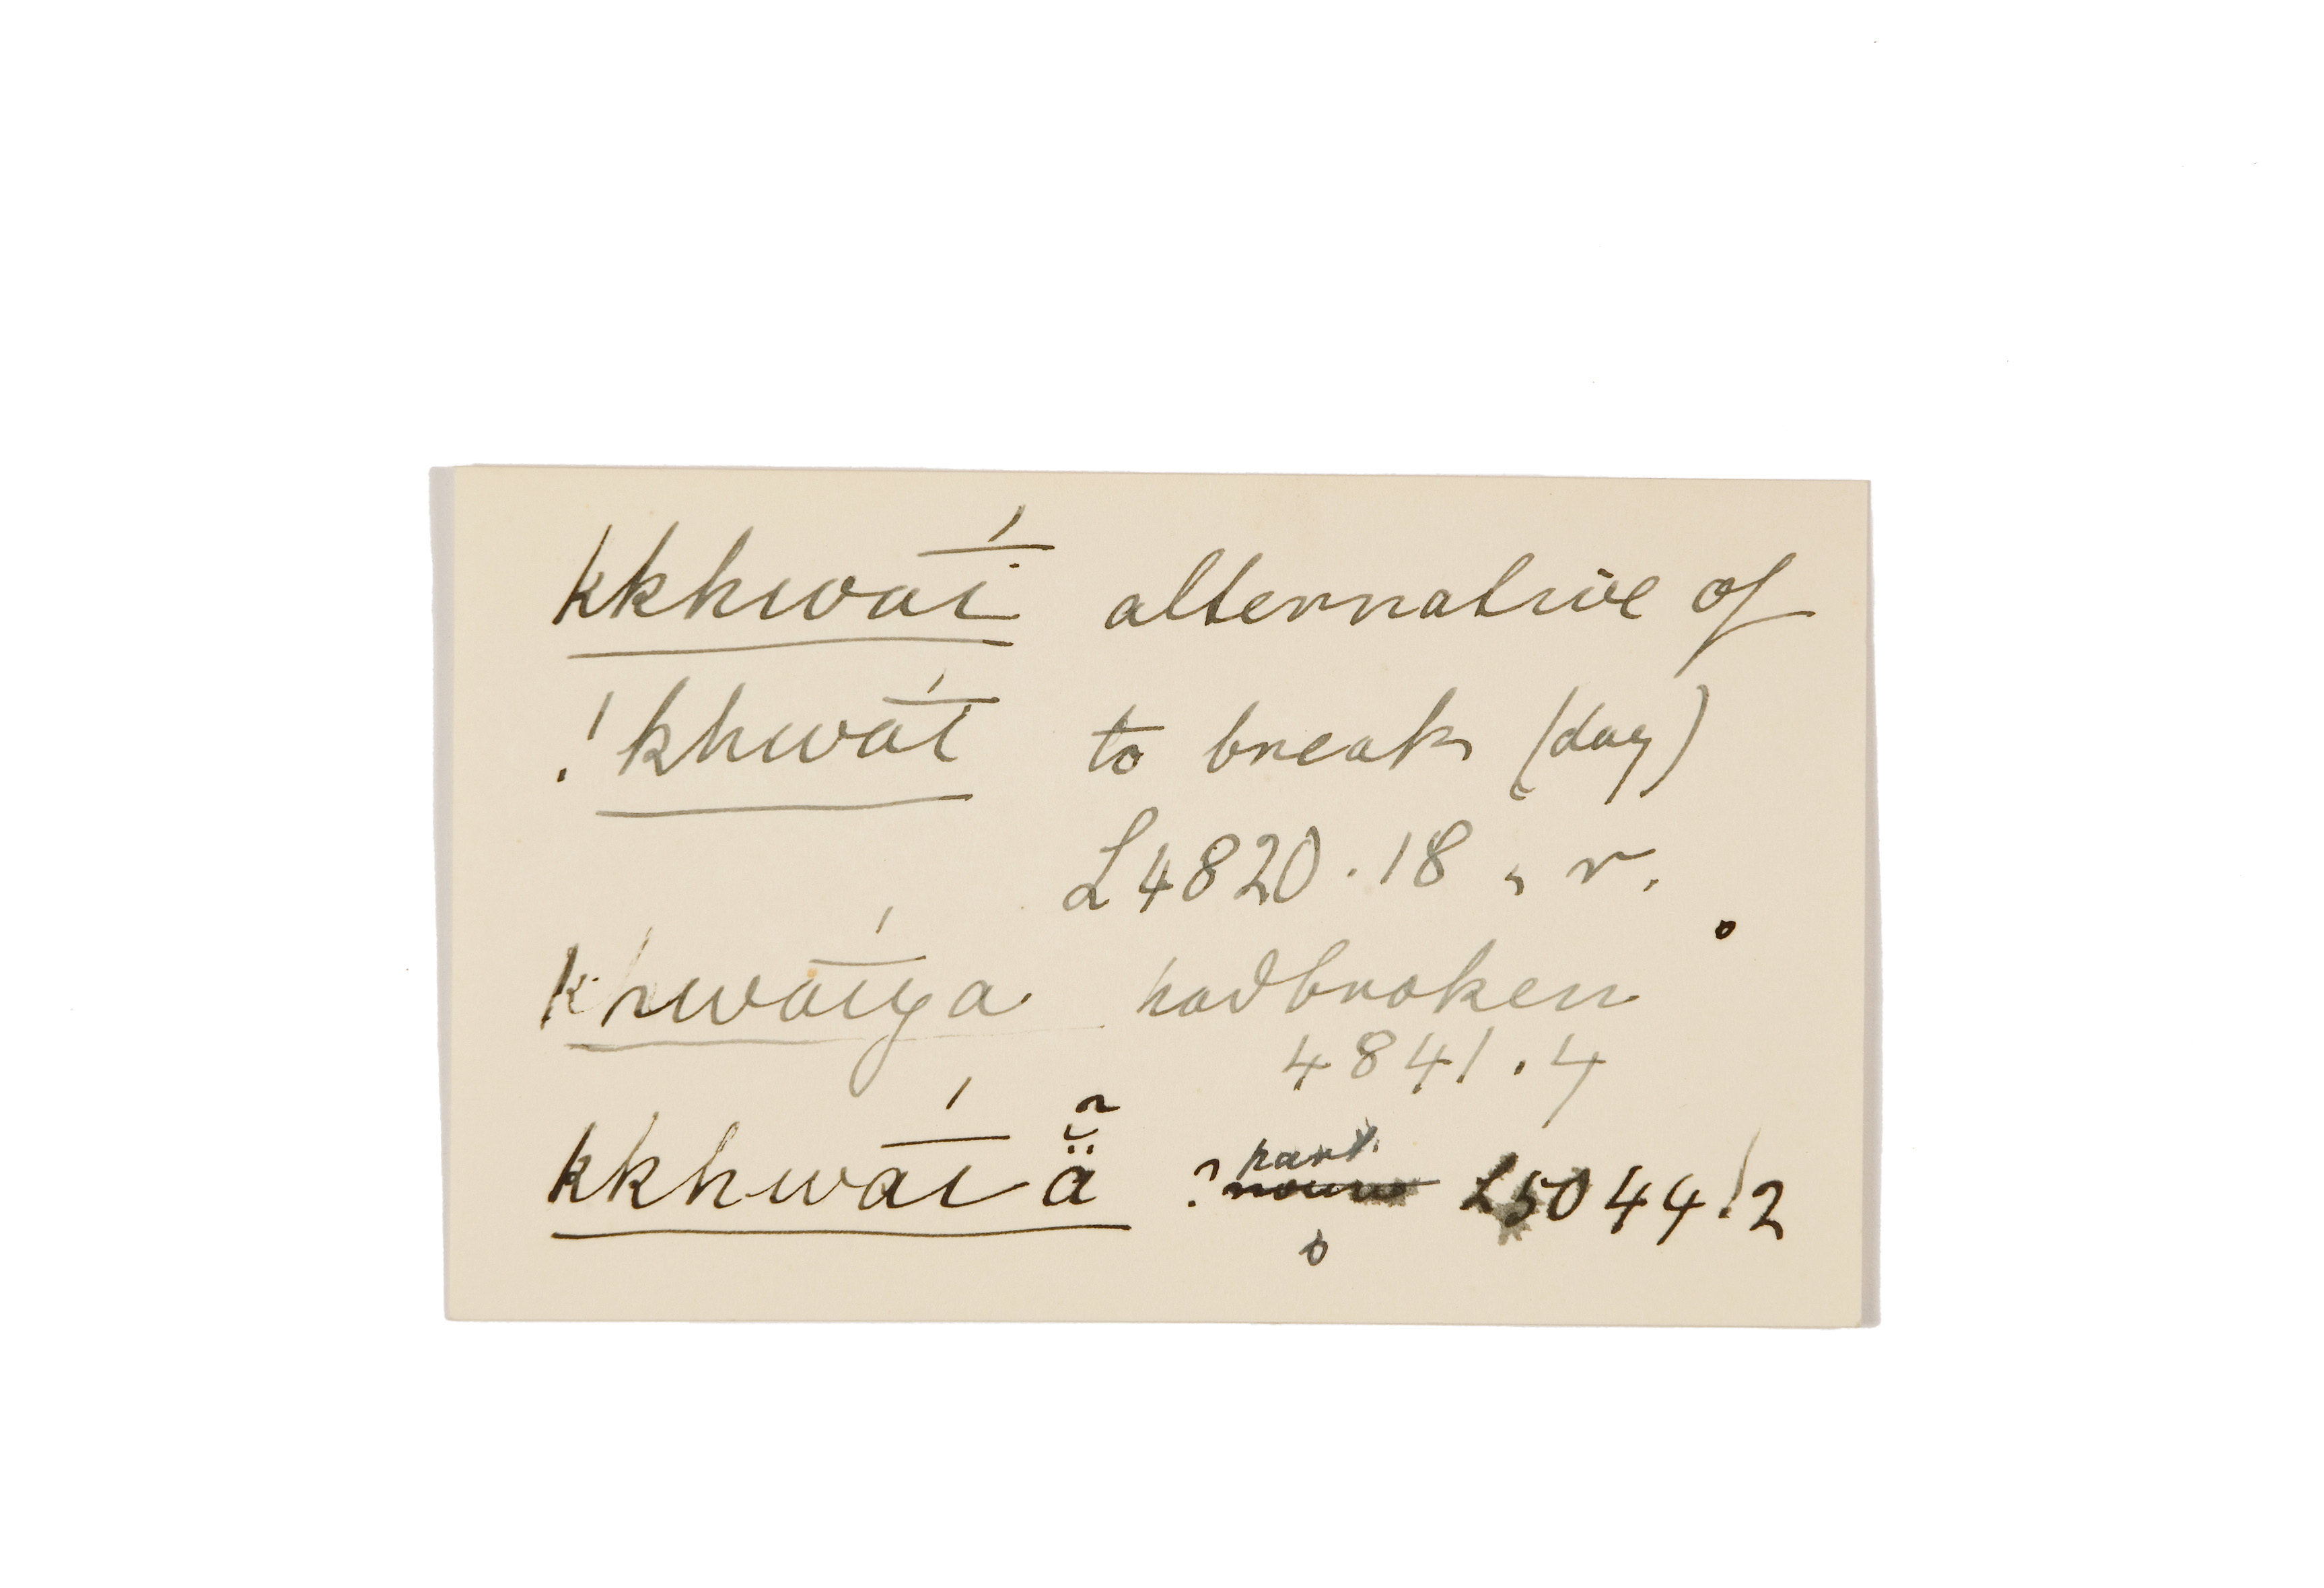 kkhwa͞í alternative of
!khwa͞í to break (day)
L4820.18, r.
khwa͞íya had broken
4841.4
kkhwa͞í ä̰̆̃ ? part. noun L5044!2